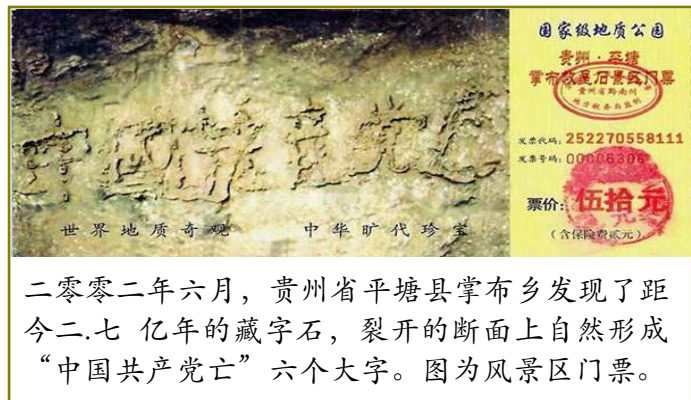 国家级地质公园
贵州·平塘
掌布救星石景区门票
贵州省黔南州
发票代码: 252270558111
发票号码: 00006306
票价: 伍拾元
(含保险费贰元)
世界地质奇观 中华旷代珍宝
二零零二年六月，贵州省平塘县掌布乡发现了距
今二.七 亿年的藏字石，裂开的断面上自然形成
“中国共产党亡”六个大字。图为风景区门票。